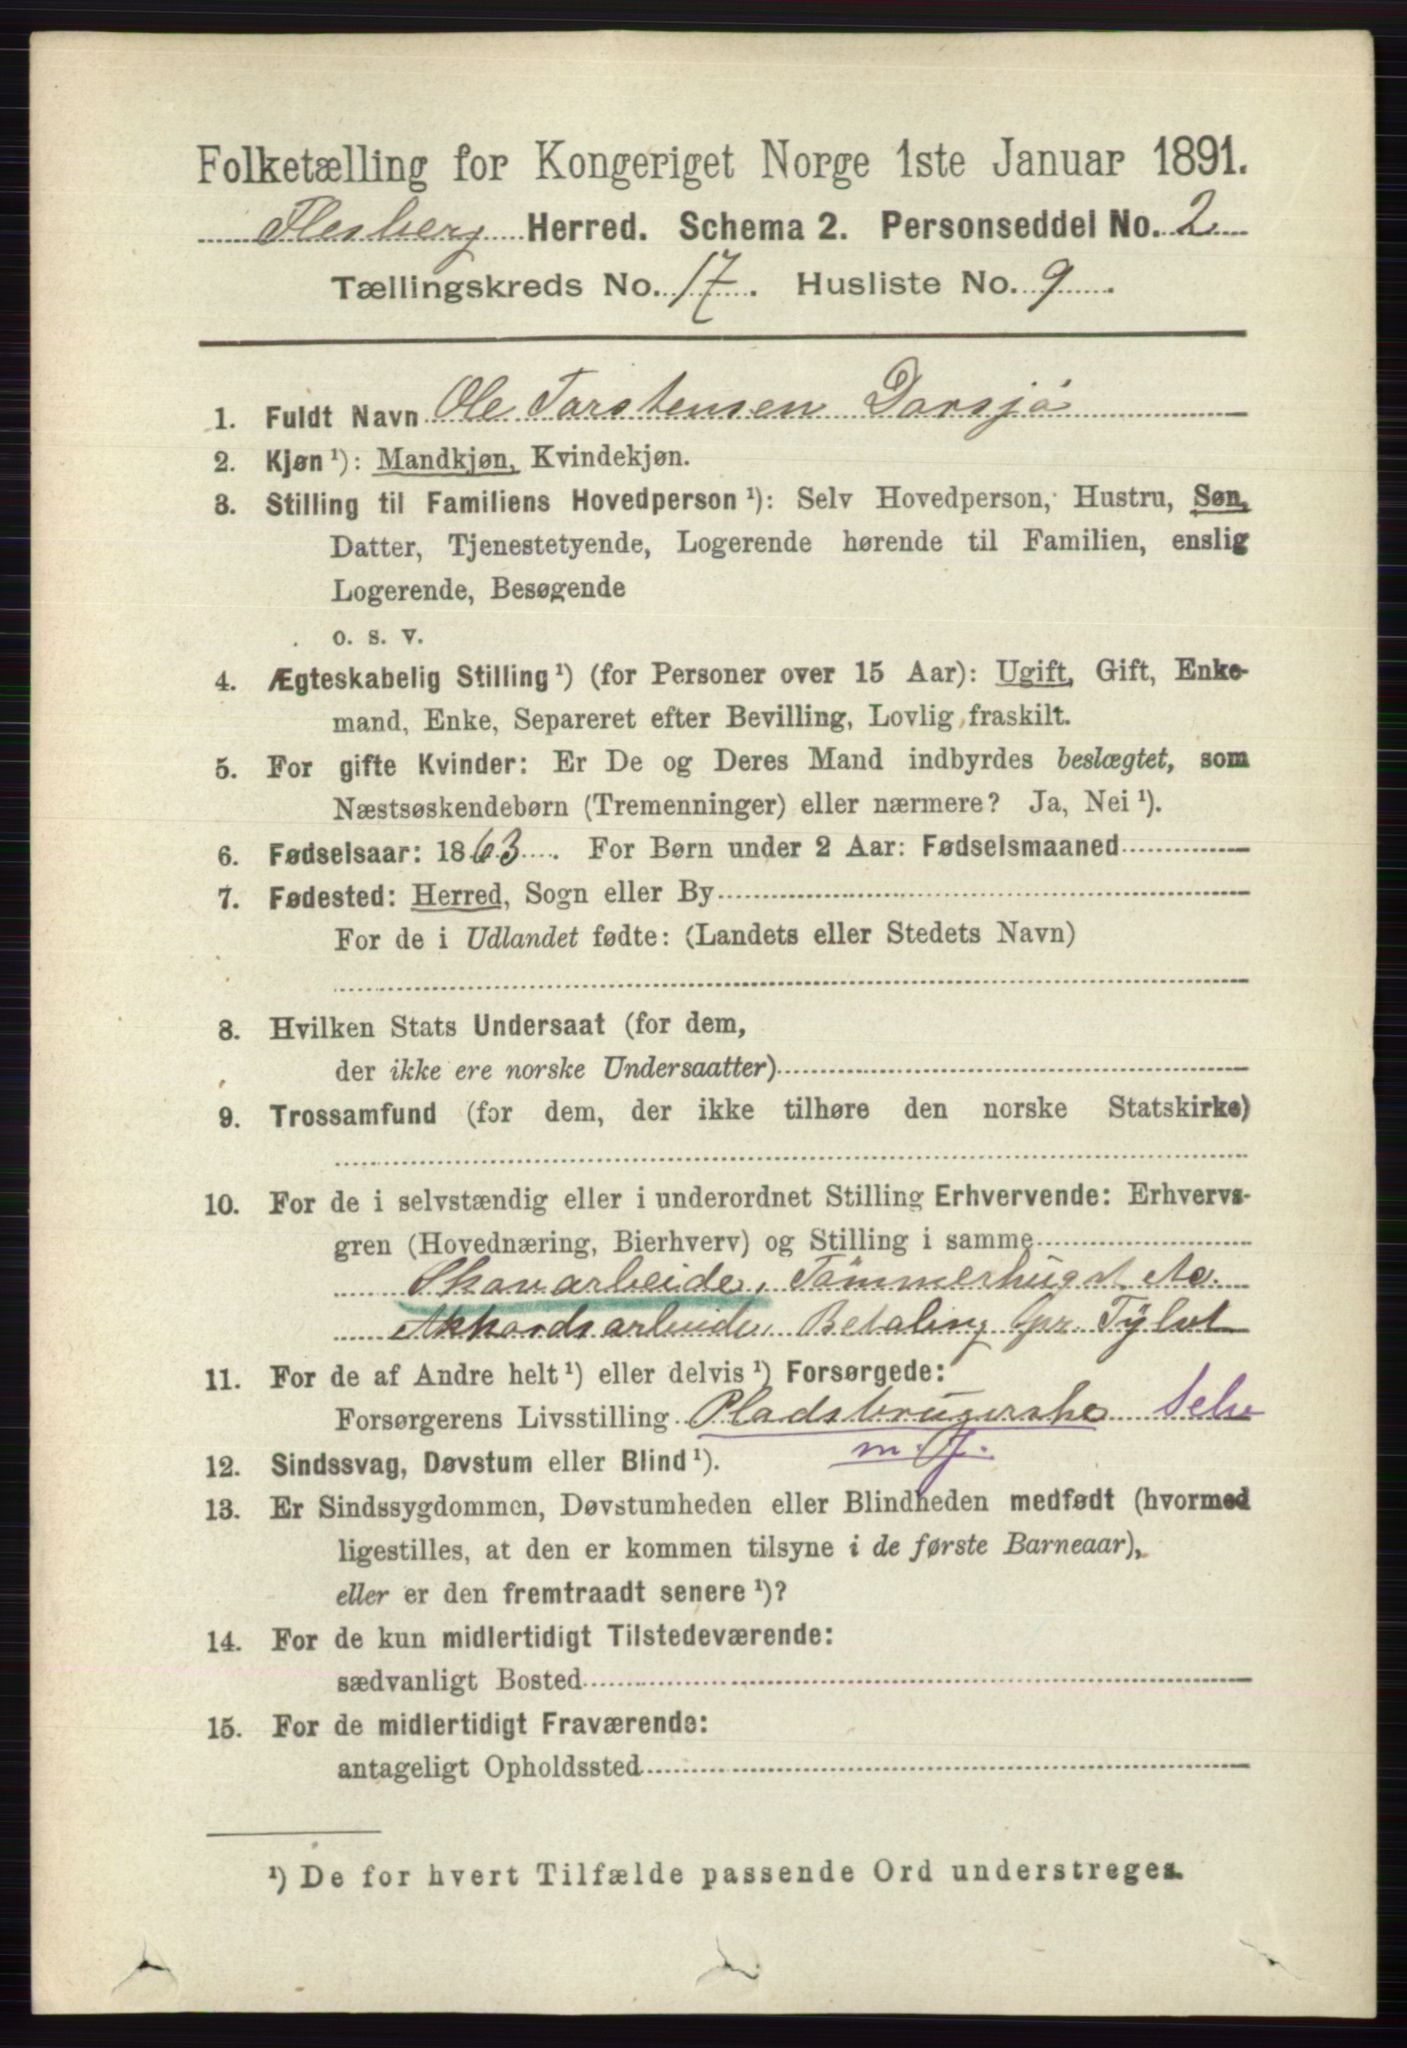 Folketælling for Kongeriget Norge 1ste Januar 1891.
Flesberg Herred. Schema 2. Personseddel No. 2
Tællingskreds No. 17. Husliste No. 9.
1. Fuldt Navn Ole Tarstensen Darsjø
2. Kjøn ¹): Mandkjøn, Kvindekjøn.
3. Stilling til Familiens Hovedperson ¹): Selv Hovedperson, Hustru, Søn,
Datter, Tjenestetyende, Logerende hørende til Familien, enslig
Logerende, Besøgende
o. s. v.
4. Ægteskabelig Stilling ¹) (for Personer over 15 Aar): Ugift, Gift, Enke-
mand, Enke, Separeret efter Bevilling, Lovlig fraskilt.
5. For gifte Kvinder: Er De og Deres Mand indbyrdes beslægtet, som
Næstsøskendebørn (Tremenninger) eller nærmere? Ja, Nei ¹).
6. Fødselsaar: 1863. For Børn under 2 Aar: Fødselsmaaned
7. Fødested: Herred, Sogn eller By
For de i Udlandet fødte: (Landets eller Stedets Navn)
8. Hvilken Stats Undersaat (for dem,
der ikke ere norske Undersaatter)
9. Trossamfund (for dem, der ikke tilhøre den norske Statskirke)
10. For de i selvstændig eller i underordnet Stilling Erhvervende: Erhvervs-
gren (Hovednæring, Bierhverv) og Stilling i samme
Skovarbeide, Tømmerhugst
Akkordsarbeide, Betaling pr. Tylvt
11. For de af Andre helt ¹) eller delvis ¹) Forsørgede:
Forsørgerens Livsstilling Pladsbrugerske Selv
m. J.
12. Sindssvag, Døvstum eller Blind ¹).
13. Er Sindssygdommen, Døvstumheden eller Blindheden medfødt (hvormed
ligestilles, at den er kommen tilsyne i de første Barneaar),
eller er den fremtraadt senere ¹)?
14. For de kun midlertidigt Tilstedeværende:
sædvanligt Bosted
15. For de midlertidigt Fraværende:
antageligt Opholdssted
¹) De for hvert Tilfælde passende Ord understreges.